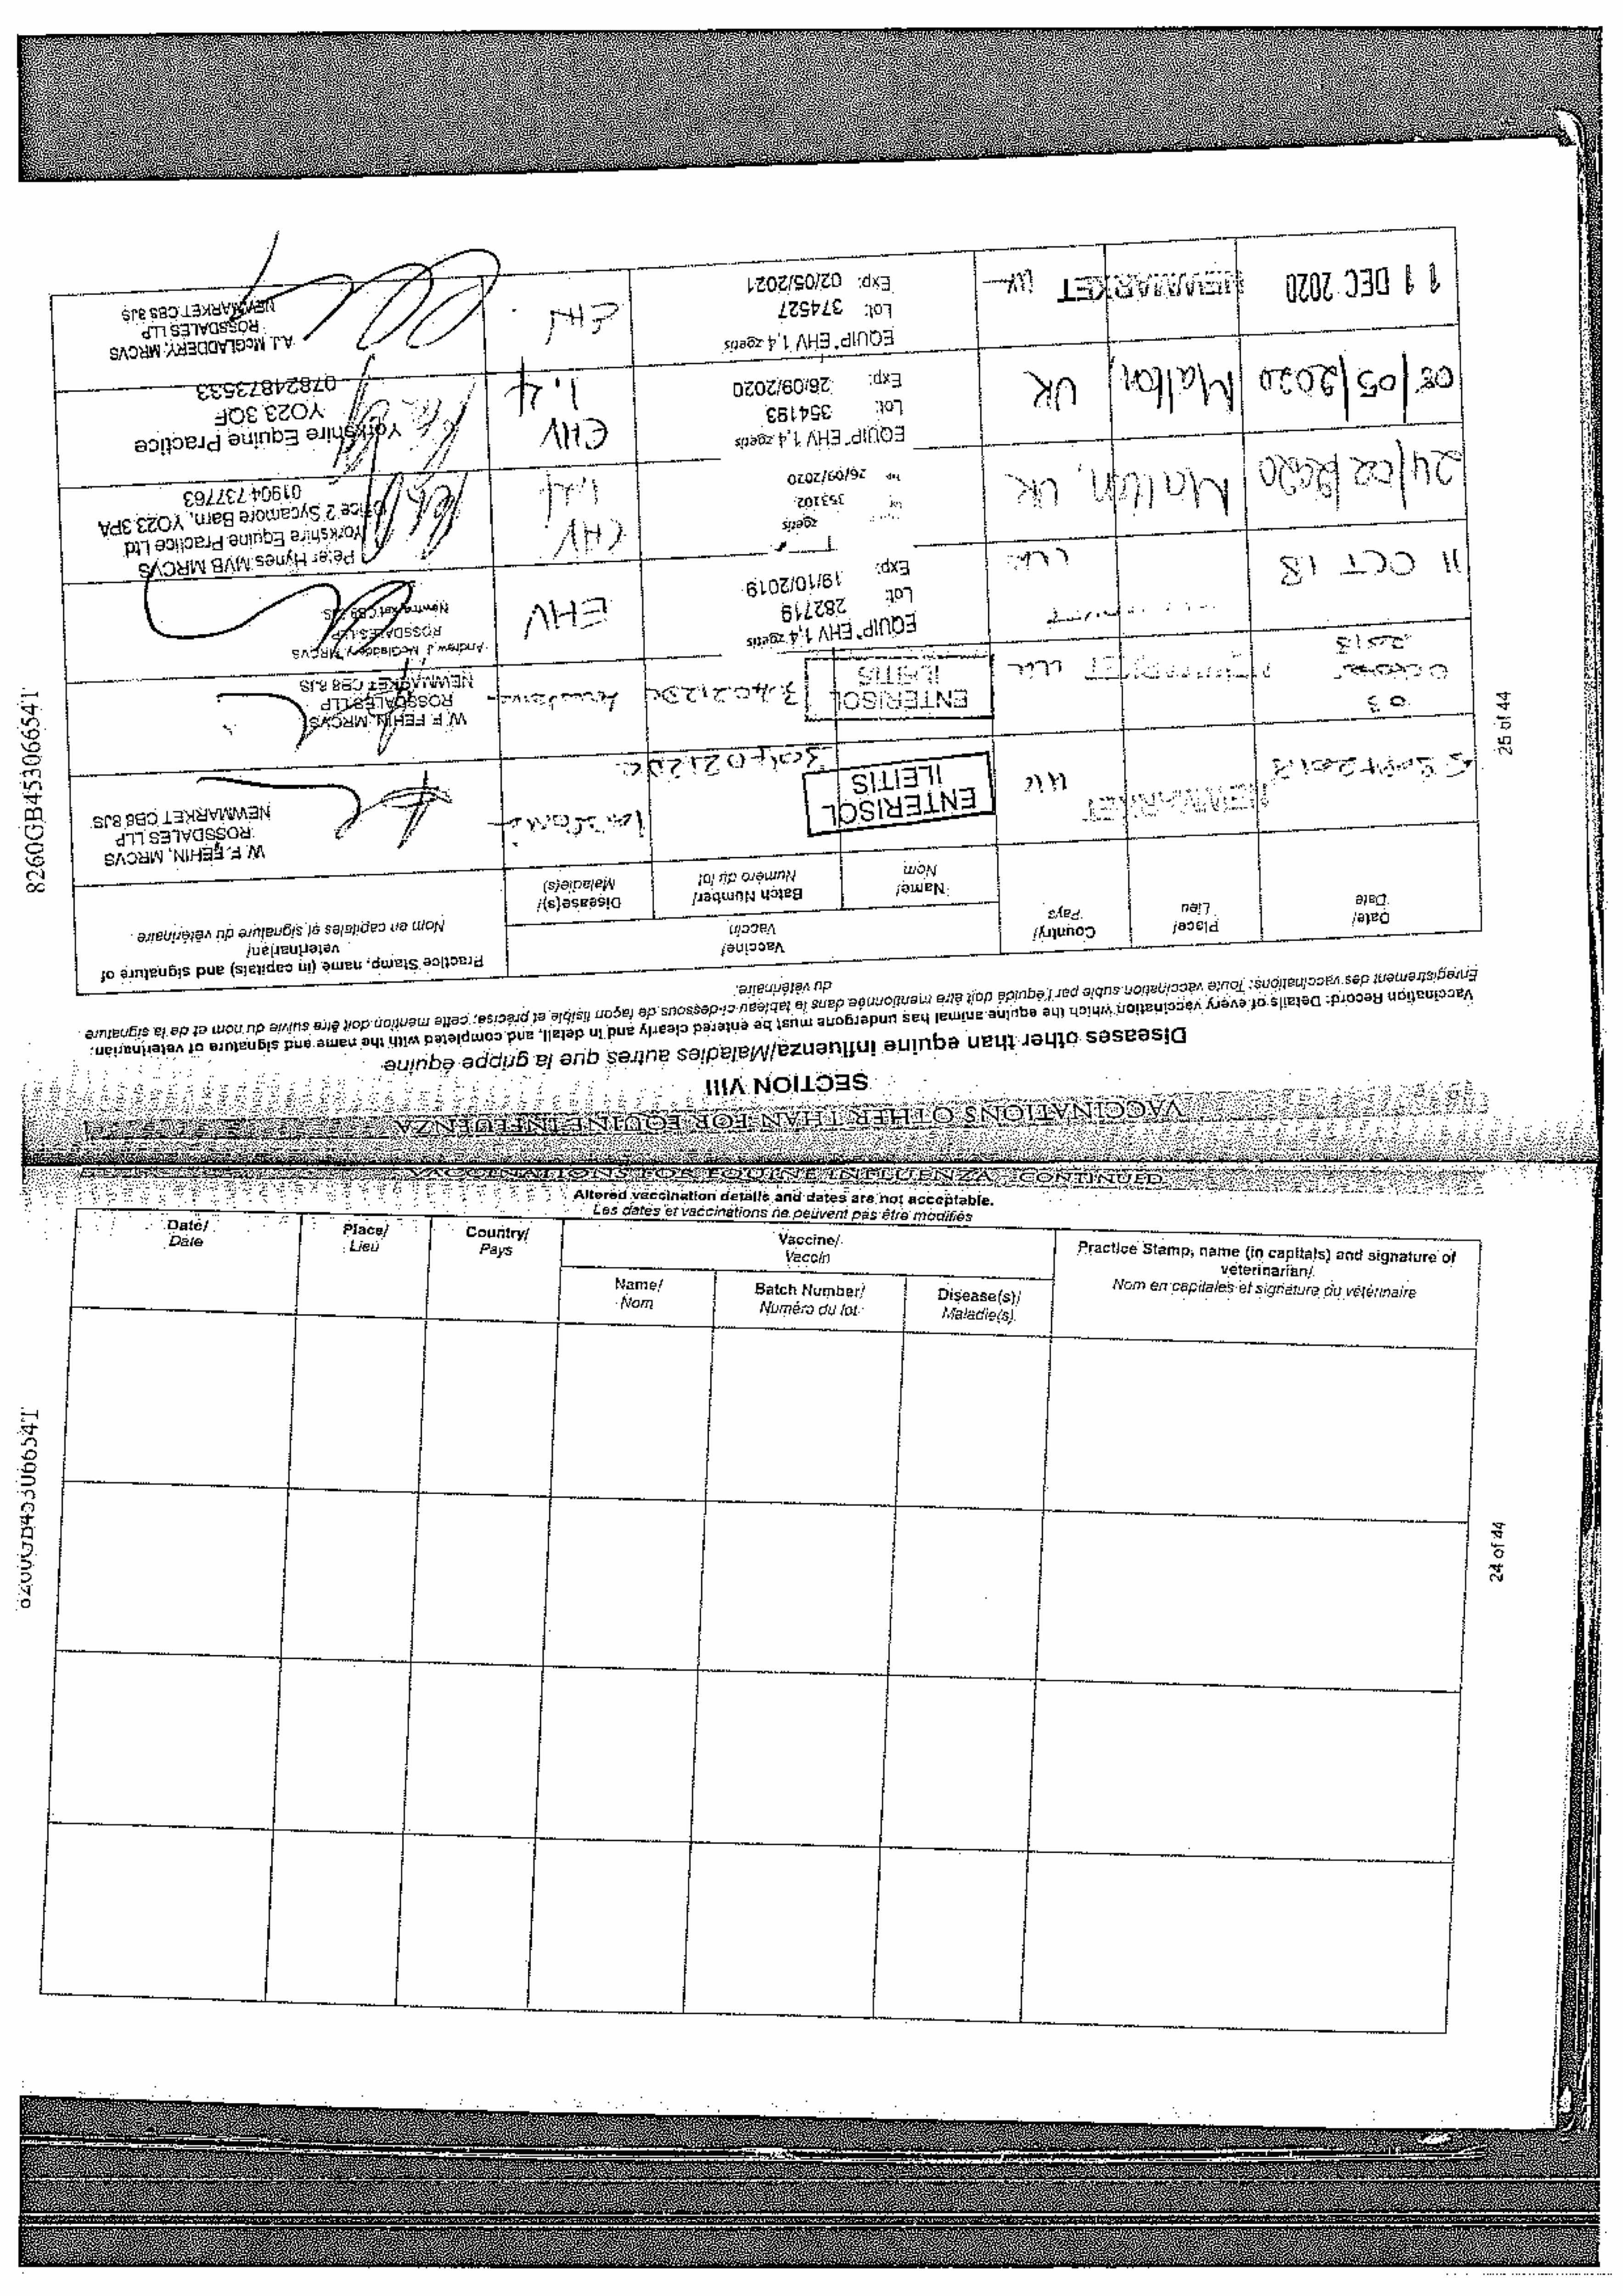 8260GB45306654T
25 of 44
VACCINATIONS OTHER THAN FOR EQUINE INFLUENZA
SECTION VIII
Diseases other than equine influenza/Maladies autres que la grippe équine
Vaccination Record: Details of every vaccination which the equine animal has undergone must be entered clearly and in detail, and completed with the name and signature of veterinarian.
Enregistrement des vaccinations: Toute vaccination subie par l'équidé doit être mentionnée dans le tableau ci-dessous de façon lisible et précise, cette mention doit être suivie du nom et de la signature
du vétérinaire.
Date/
Date
Place/
Lieu
Country/
Pays
Vaccine/
Vaccin
Name/
Nom
Batch Number/
Numéro du lot
Disease(s)/
Maladie(s)
Practice Stamp, name (in capitals) and signature of
veterinarian/
Nom en capitales et signature du vétérinaire
NEWMARKET
UK
ENTERISOL
ILEITIS
W. F. FEHIN, MRCVS
ROSSDALES LLP
NEWMARKET CB8 8JS
03
October
2018
NEWMARKET
UK
ENTERISOL
ILEITIS
W. F. FEHIN, MRCVS
ROSSDALES LLP
NEWMARKET CB8 8JS
11 OCT 18
UK
EQUIP EHV 1,4 zoetis
Lot: 282719
Exp: 19/10/2019
EHV
Andrew J. McGladdery, MRCVS
ROSSDALES LLP
Newmarket CB8 8JS
24/02/2020
Malton, UK
zoetis
353102
26/09/2020
EHV
1,4
Peter Hynes MVB MRCVS
Yorkshire Equine Practice Ltd
Office 2 Sycamore Barn, YO23 3PA
01904 737763
08/05/2020
Malton,
UK
EQUIP EHV 1,4 zoetis
Lot: 354193
Exp: 26/09/2020
EHV
1,4
Yorkshire Equine Practice
YO23 3QF
07824873533
11 DEC 2020
NEWMARKET
UK
EQUIP EHV 1,4 zoetis
Lot: 374527
Exp: 02/05/2021
EHV
A.J. McGLADDERY, MRCVS
ROSSDALES LLP
NEWMARKET CB8 8JS
VACCINATIONS FOR EQUINE INFLUENZA - CONTINUED
Altered vaccination details and dates are not acceptable.
Les dates et vaccinations ne peuvent pas être modifiés
Date/
Date
Place/
Lieu
Country/
Pays
Vaccine/
Vaccin
Name/
Nom
Batch Number/
Numéro du lot
Disease(s)/
Maladie(s)
Practice Stamp, name (in capitals) and signature of
veterinarian/
Nom en capitales et signature du vétérinaire
8260GB45306654T
24 of 44